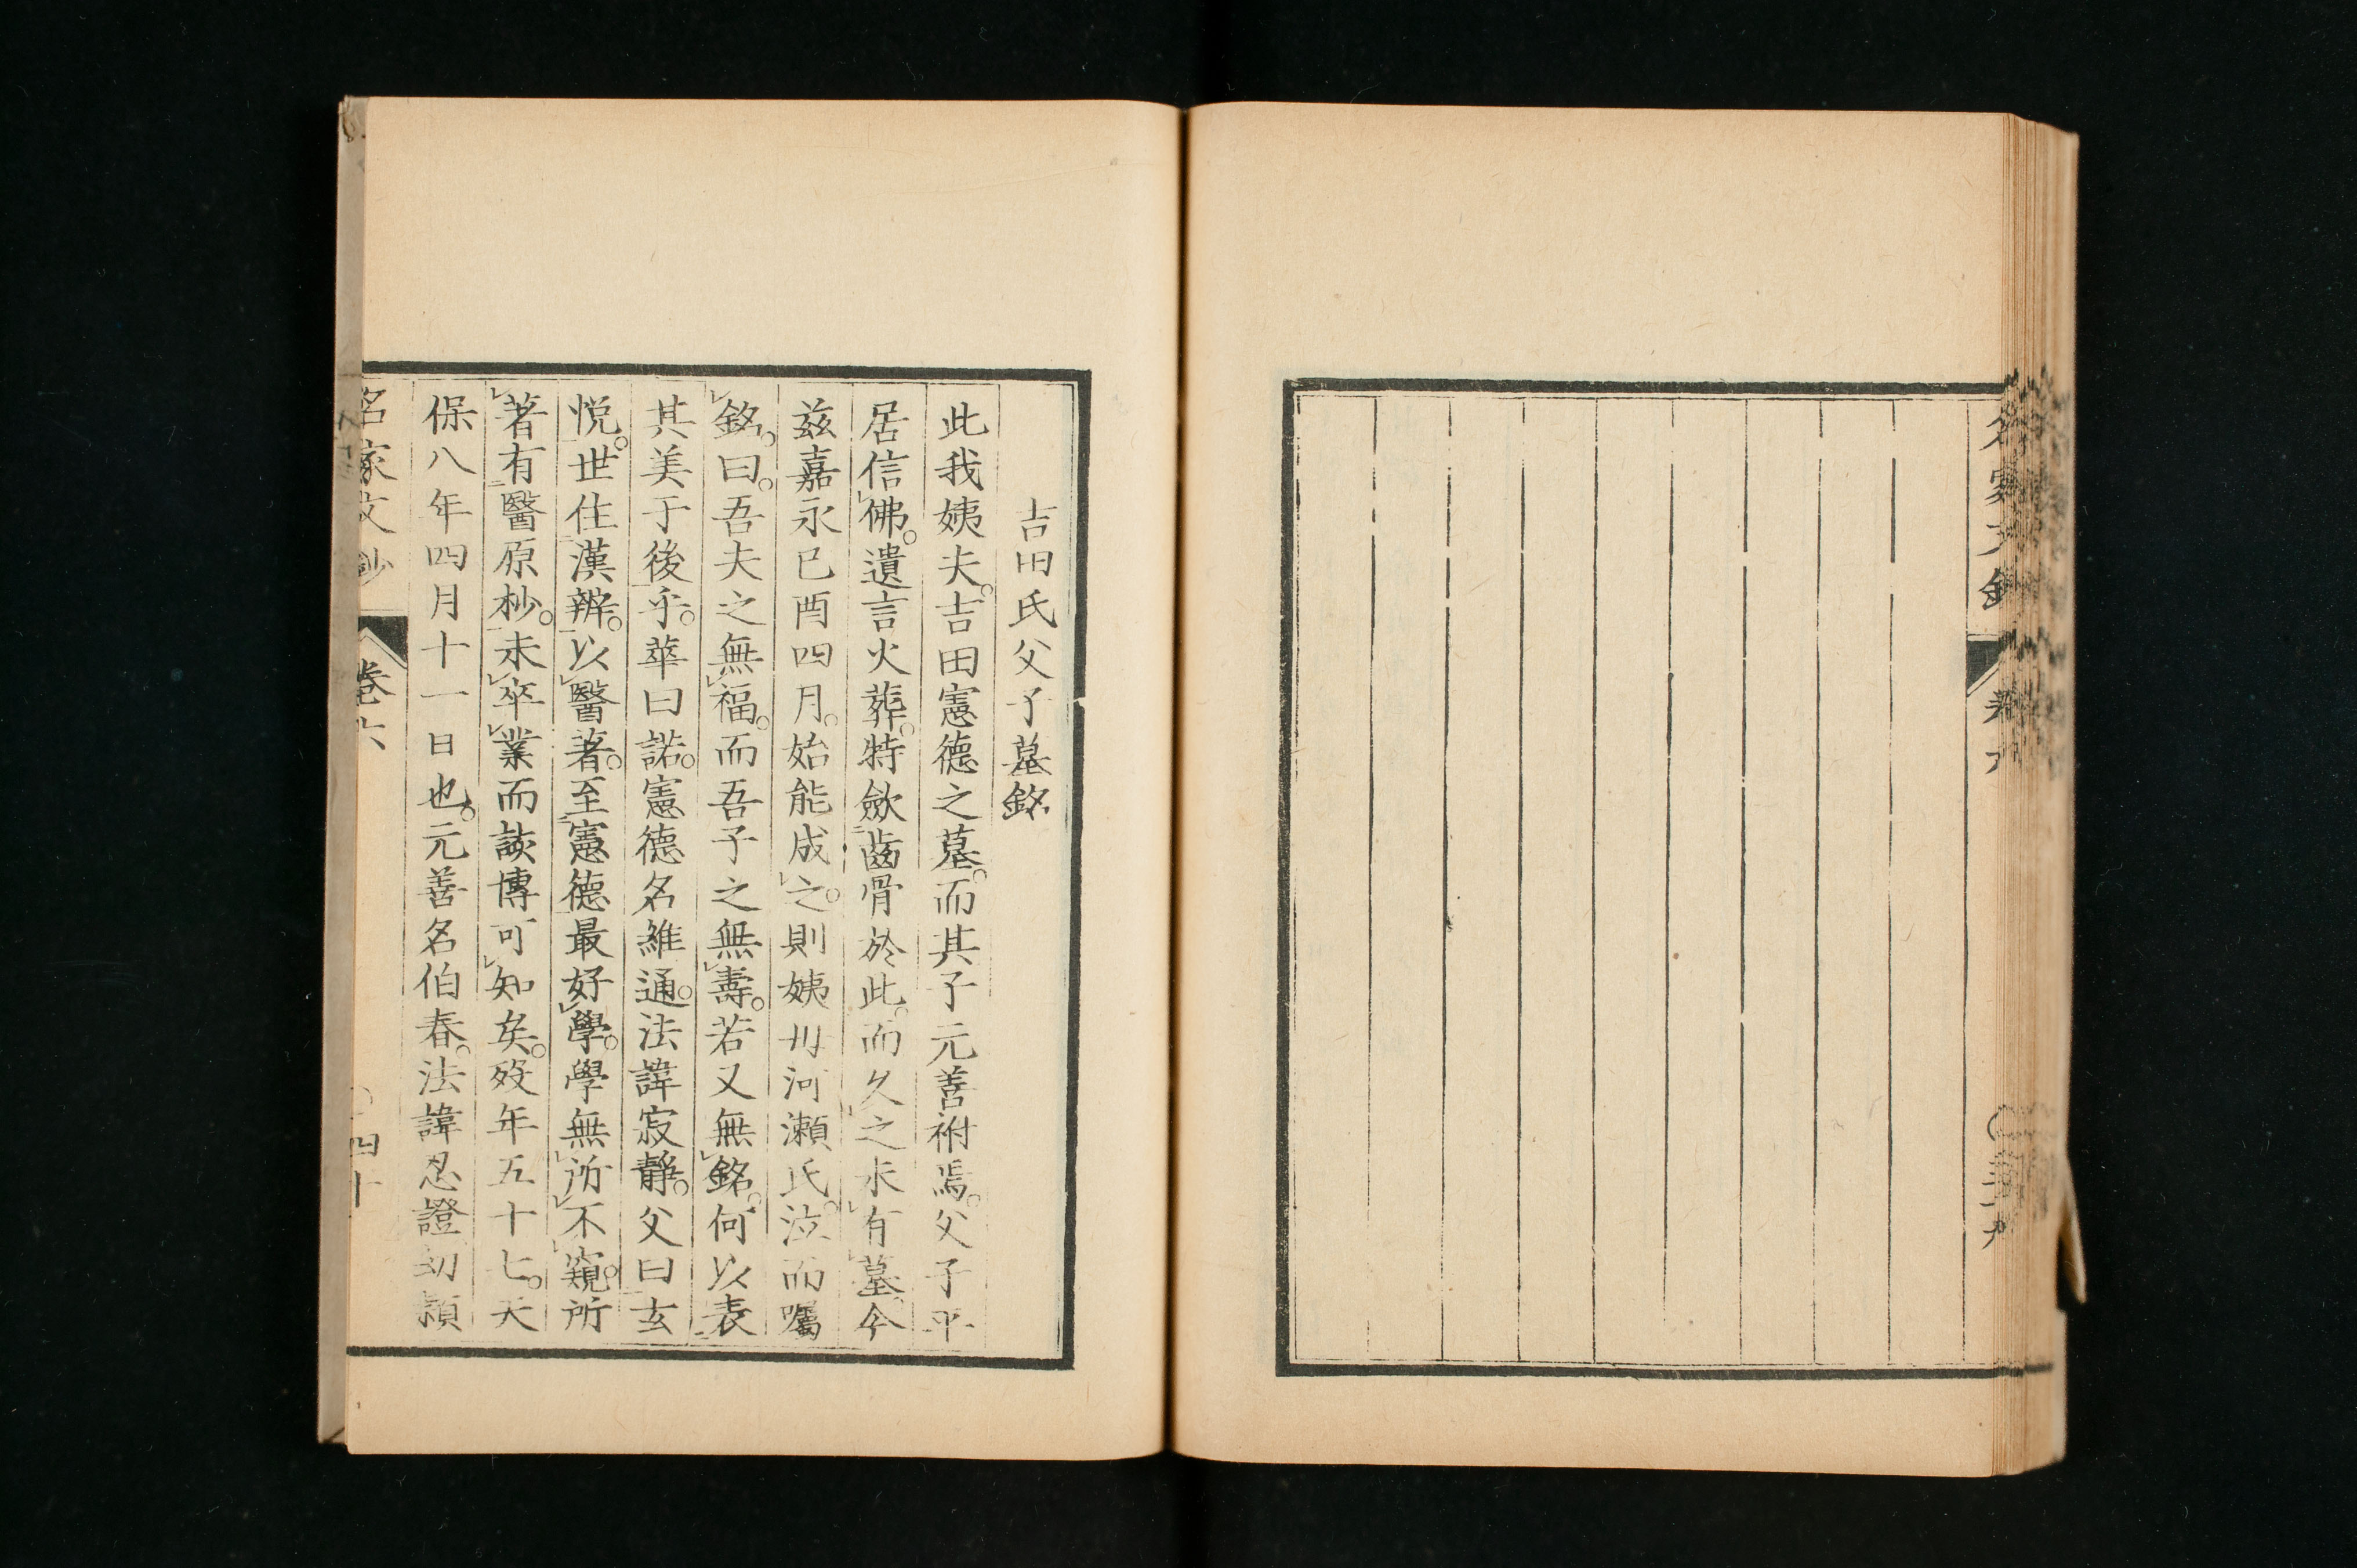 名家文鈔
卷六
吉田氏父子墓銘
此我姨夫。吉田憲德之墓。而其子元善祔焉。父子平
居信佛。遺言火葬。特斂齒骨於此。而久之未有墓。今
茲嘉永已酉四月。始能成之。則姨毋河瀬氏。泣而囑
銘。曰。吾夫之無福。而吾子之無壽。若又無銘。何以表
其美于後乎。華曰諾。憲德名維通。法諱寂靜。父曰玄
悦。世住漢辨。以醫著。至憲德最好學。學無所不窺。所
著有醫原杪。未卒業而談博可知矣。歿年五十七。天
保八年四月十一日也。元善名伯春。法諱忍證幼穎
名家文鈔
卷六
四十